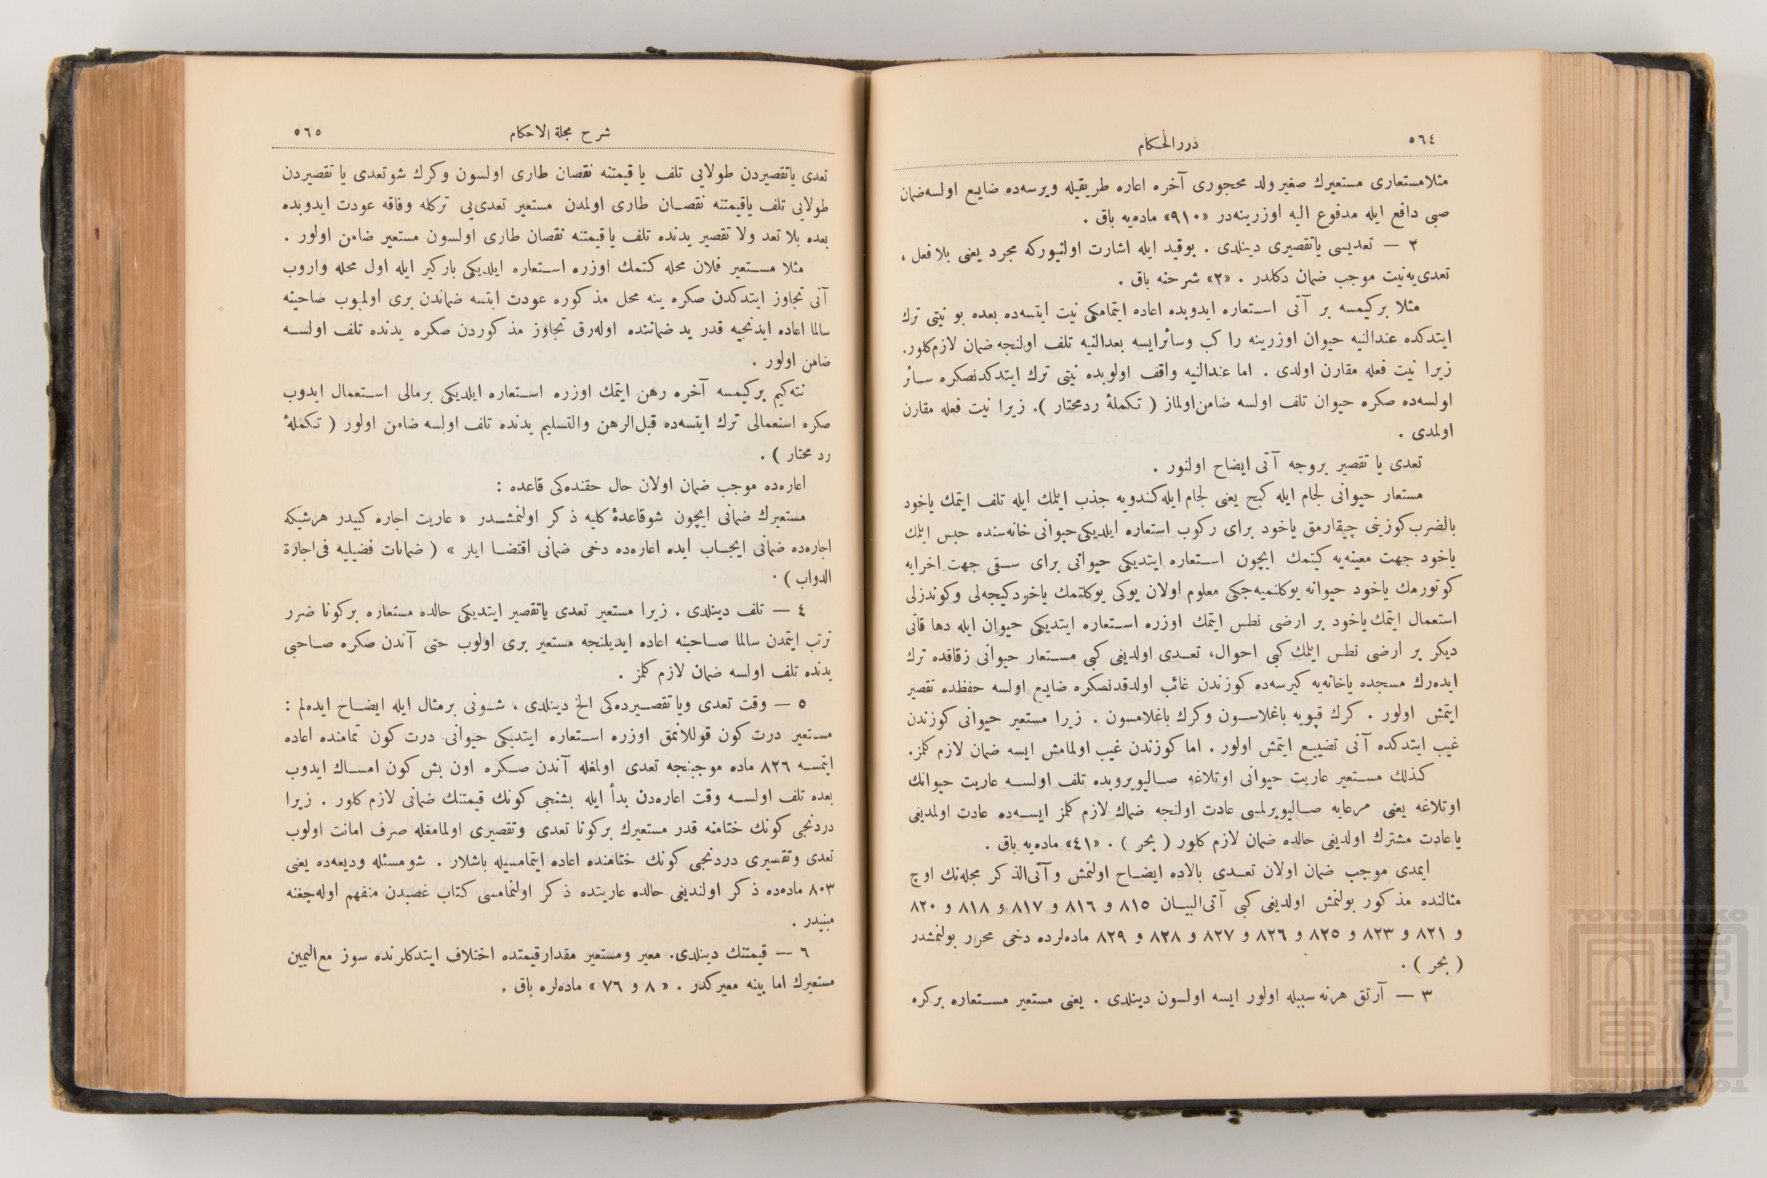 ٥٦٤
دررالحكام
مثلا مستعاری مستعیرك صغیر ولد محجوری آخره اعاره طریقیله ویرسه‌ده ضایع اولسه ضمان
صبی دافع ایله مدفوع الیه اوزرینه‌در «٩١٠» ماده‌یه باق .
٢ — تعدیسی یاتقصیری دینلدی . بوقید ایله اشارت اولنیورکه مجرد یعنی بلا فعل ،
تعدی‌یه نیت موجب ضمان دکلدر . «٢» شرحنه باق .
مثلا برکیمسه بر آتی استعاره ایدوبده اعاده ایتمامکی نیت ایتسه‌ده بعده بو نیتی ترك
ایتدکده عندالنیه حیوان اوزرینه راکب وسائرایسه بعدالنیه تلف اولنجه ضمان لازم کلور.
زیرا نیت فعله مقارن اولدی . اما عندالنیه واقف اولوبده نیتی ترك ایتدکدنصکره سائر
اولسه‌ده صکره حیوان تلف اولسه ضامن اولماز ( تکملهٔ ردمحتار ). زیرا نیت فعله مقارن
اولمدی .
تعدی یا تقصیر بروجه آتی ایضاح اولنور .
مستعار حیوانی لجام ایله کبح یعنی لجام ایله کندویه جذب ایتمك ایله تلف ایتمك یاخود
بالضرب کوزینی چیقارمق یاخود برای رکوب استعاره ایلدیکی حیوانی خانه‌سنده حبس ایتمك
یاخود جهت معینه‌یه کیتمك ایچون استعاره ایتدیکی حیوانی برای سقی جهت اخرایه
کوتورمك یاخود حیوانه یوکلتمیه‌جکی معلوم اولان یوکی یوکلتمك یاخود کیجه‌لی وکوندزلی
استعمال ایتمك یاخود بر ارضی نطس ایتمك اوزره استعاره ایتدیکی حیوان ایله دها قاتی
دیکر بر ارضی نطس ایتمك کبی احوال، تعدی اولدیغی کبی مستعار حیوانی زقاقده ترك
ایده‌رك مسجده یاخانه‌یه کیرسه‌ده کوزندن غائب اولدقدنصکره ضایع اولسه حفظده تقصیر
ایتمش اولور . کرك قپویه باغلاسون وکرك باغلامسون . زیرا مستعیر حیوانی کوزندن
غیب ایتدکده آنی تضییع ایتمش اولور . اما کوزندن غیب اولمامش ایسه ضمان لازم کلمز.
کذلك مستعیر عاریت حیوانی اوتلاغه صالیویروبده تلف اولسه عاریت حیوانك
اوتلاغه یعنی مرعایه صالیویرلمسی عادت اولنجه ضمان لازم کلمز ایسه‌ده عادت اولمدیغی
یا عادت مشترك اولدیغی حالده ضمان لازم کلور ( بحر ) . «٤١» ماده‌یه باق .
ایمدی موجب ضمان اولان تعدی بالاده ایضاح اولنمش وآتی‌الذکر مجله‌نك اوچ
مثالنده مذکور بولنمش اولدیغی کبی آتی‌البیان ٨١٥ و ٨١٦ و ٨١٧ و ٨١٨ و ٨٢٠
و ٨٢١ و ٨٢٣ و ٨٢٥ و ٨٢٦ و ٨٢٧ و ٨٢٨ و ٨٢٩ ماده‌لرده دخی محرر بولنمشدر
( بحر ) .
٣ — آرتق هرنه سببله اولور ایسه اولسون دینلدی . یعنی مستعیر مستعاره برکره
شرح مجلة الاحكام
٥٦٥
تعدی یاتقصیردن طولایی تلف یا قیمتنه نقصان طاری اولسون وکرك شو تعدی یا تقصیردن
طولایی تلف یاقیمتنه نقصان طاری اولمدن مستعیر تعدی‌یی ترکله وفاقه عودت ایدوبده
بعده بلا تعد ولا تقصیر یدنده تلف یا قیمتنه نقصان طاری اولسون مستعیر ضامن اولور .
مثلا مستعیر فلان محله کتمك اوزره استعاره ایلدیکی بارکیر ایله اول محله واروب
آنی تجاوز ایتدکدن صکره ینه محل مذکوره عودت ایتسه ضماندن بری اولمیوب صاحبنه
سالما اعاده ایدنجیه قدر ید ضماننده اوله‌رق تجاوز مذکوردن صکره یدنده تلف اولسه
ضامن اولور .
نته‌کیم برکیمسه آخره رهن ایتمك اوزره استعاره ایلدیکی برمالی استعمال ایدوب
صکره استعمالی ترك ایتسه‌ده قبل‌الرهن والتسلیم یدنده تلف اولسه ضامن اولور ( تکملهٔ
رد محتار ) .
اعاره‌ده موجب ضمان اولان حال حقنده‌کی قاعده :
مستعیرك ضمانی ایچون شوقاعدهٔ کلیه ذکر اولنمشدر « عاریت اجاره کبیدر هرشیکه
اجاره‌ده ضمانی ایجاب ایده اعاره‌ده دخی ضمانی اقتضا ایلر » ( ضمانات فضیلیه فی‌اجازة
الدواب ) .
٤ — تلف دینلدی . زیرا مستعیر تعدی یاتقصیر ایتدیکی حالده مستعاره برکونا ضرر
ترتب ایتمدن سالما صاحبنه اعاده ایدیلنجه مستعیر بری اولوب حتی آندن صکره صاحبی
یدنده تلف اولسه ضمان لازم کلمز .
٥ — وقت تعدی ویا تقصیرده‌کی الخ دینلدی ، شونی برمثال ایله ایضاح ایده‌لم :
مستعیر درت کون قوللانمق اوزره استعاره ایتدیکی حیوانی درت کون تمامنده اعاده
ایتمسه ٨٢٦ ماده موجبنجه تعدی اولمغله آندن صکره اون بش کون امساك ایدوب
بعده تلف اولسه وقت اعاره‌دن بدأ ایله بشنجی کونك قیمتنك ضمانی لازم کلور . زیرا
دردنجی کونك ختامنه قدر مستعیرك برکونا تعدی وتقصیری اولمامغله صرف امانت اولوب
تعدی وتقصیری دردنجی کونك ختامنده اعاده ایتمامسیله باشلار . شو مسئله ودیعه‌ده یعنی
٨٠٣ ماده‌ده ذکر اولندیغی حالده عاریتده ذکر اولنمامسی کتاب غصبدن منفهم اوله‌جغنه
مبنیدر .
٦ — قیمتنك دینلدی. معیر ومستعیر مقدارقیمتده اختلاف ایتدکلرنده سوز مع‌الیمین
مستعیرك اما بینه معیرکدر . « ٨ و ٧٦ » ماده‌لره باق .
TOYO BUNKO